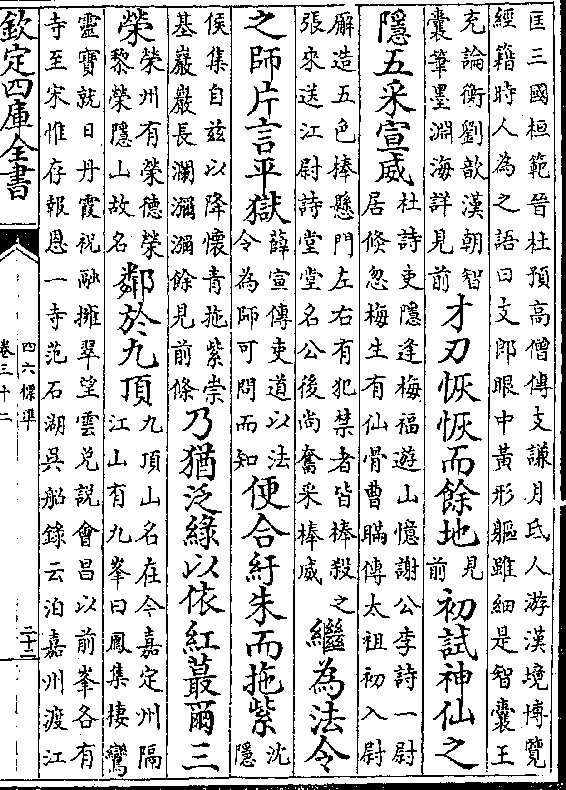 匡三國桓範晉杜預高僧傳支謙月氏人游漢境博覽
經籍時人為之語曰支郎眼中黃形軀雖細是智囊王
充論衡劉歆漢朝智
囊筆墨淵海詳見前
才刃恢恢而餘地
見
前
初試神仙之
隱五采宣威
杜詩吏隱逢梅福遊山憶謝公李詩一尉
居倏忽梅生有仙骨曹瞞傳太祖初入尉
廨造五色棒懸門左右有犯禁者皆棒殺之
張來送江尉詩堂堂名公後尚奮采棒威
繼為法令
之師片言平獄
薛宣傳吏道以法
令為師可問而知
便合紆朱而拖紫
沈
隱
侯集自兹以降懷青拖紫崇
基巖巖長瀾瀰瀰餘見前條
乃猶泛綠以依紅蕞爾三
榮
榮州有榮德榮
黎榮隱山故名
鄰於九頂
九頂山名在今嘉定州隔
江山有九峯曰鳳集棲鸞
靈寶就日丹霞祝融擁翠望雲兑說會昌以前峯各有
寺至宋惟存報恩一寺范石湖吳船錄云泊嘉州渡江
欽定四庫全書
四六標準
卷三十二